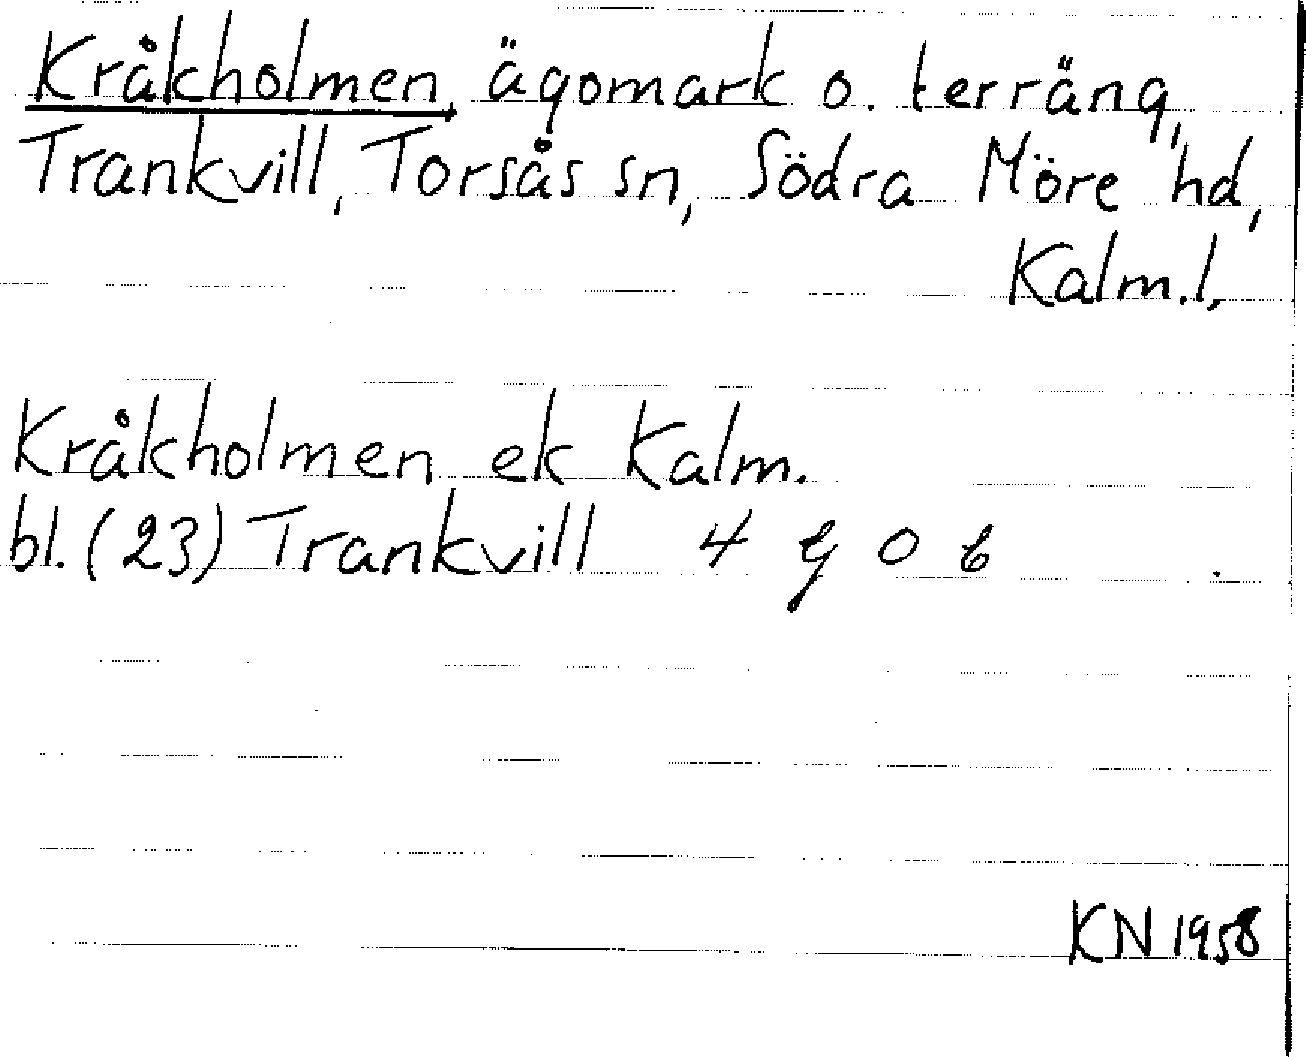 Kråkholmen, ägomark o. terräng,
Trankvill, Torsås sn, Södra Möre hd,
Kalm.l.
Kråkholmen ek Kalm.
bl. (23) Trankvill 4 g 0 b
KN 1958